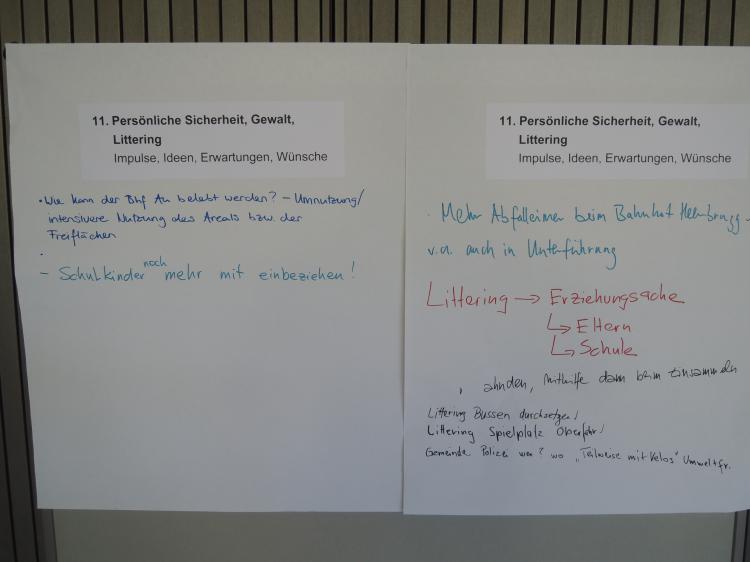 11. Persönliche Sicherheit, Gewalt,
Littering
Impulse, Ideen, Erwartungen, Wünsche
• Wie kann der Bhf Au belebt werden? – Umnutzung/
intensivere Nutzung des Areals bzw. der
Freiflächen
– Schulkinder noch mehr mit einbeziehen!
11. Persönliche Sicherheit, Gewalt,
Littering
Impulse, Ideen, Erwartungen, Wünsche
· Mehr Abfalleimer beim Bahnhof Heerbrugg –
v.a. auch in Unterführung
Littering → Erziehungssache
↳ Eltern
↳ Schule
ahnden, Mithilfe dann beim Einsammeln
Littering Bussen durchsetzen!
Littering Spielplatz Oberfahr!
Gemeinde Polizei wer? wo „Teilweise mit Velos" Umweltfr.